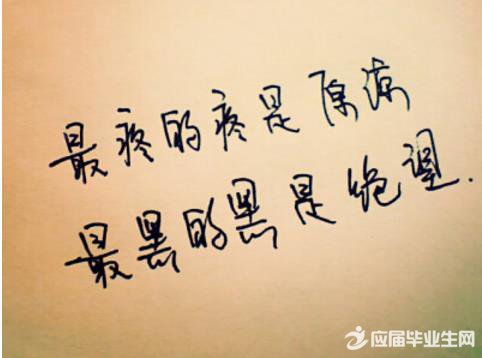 最疼的疼是原谅
最黑的黑是绝望.
应届毕业生网